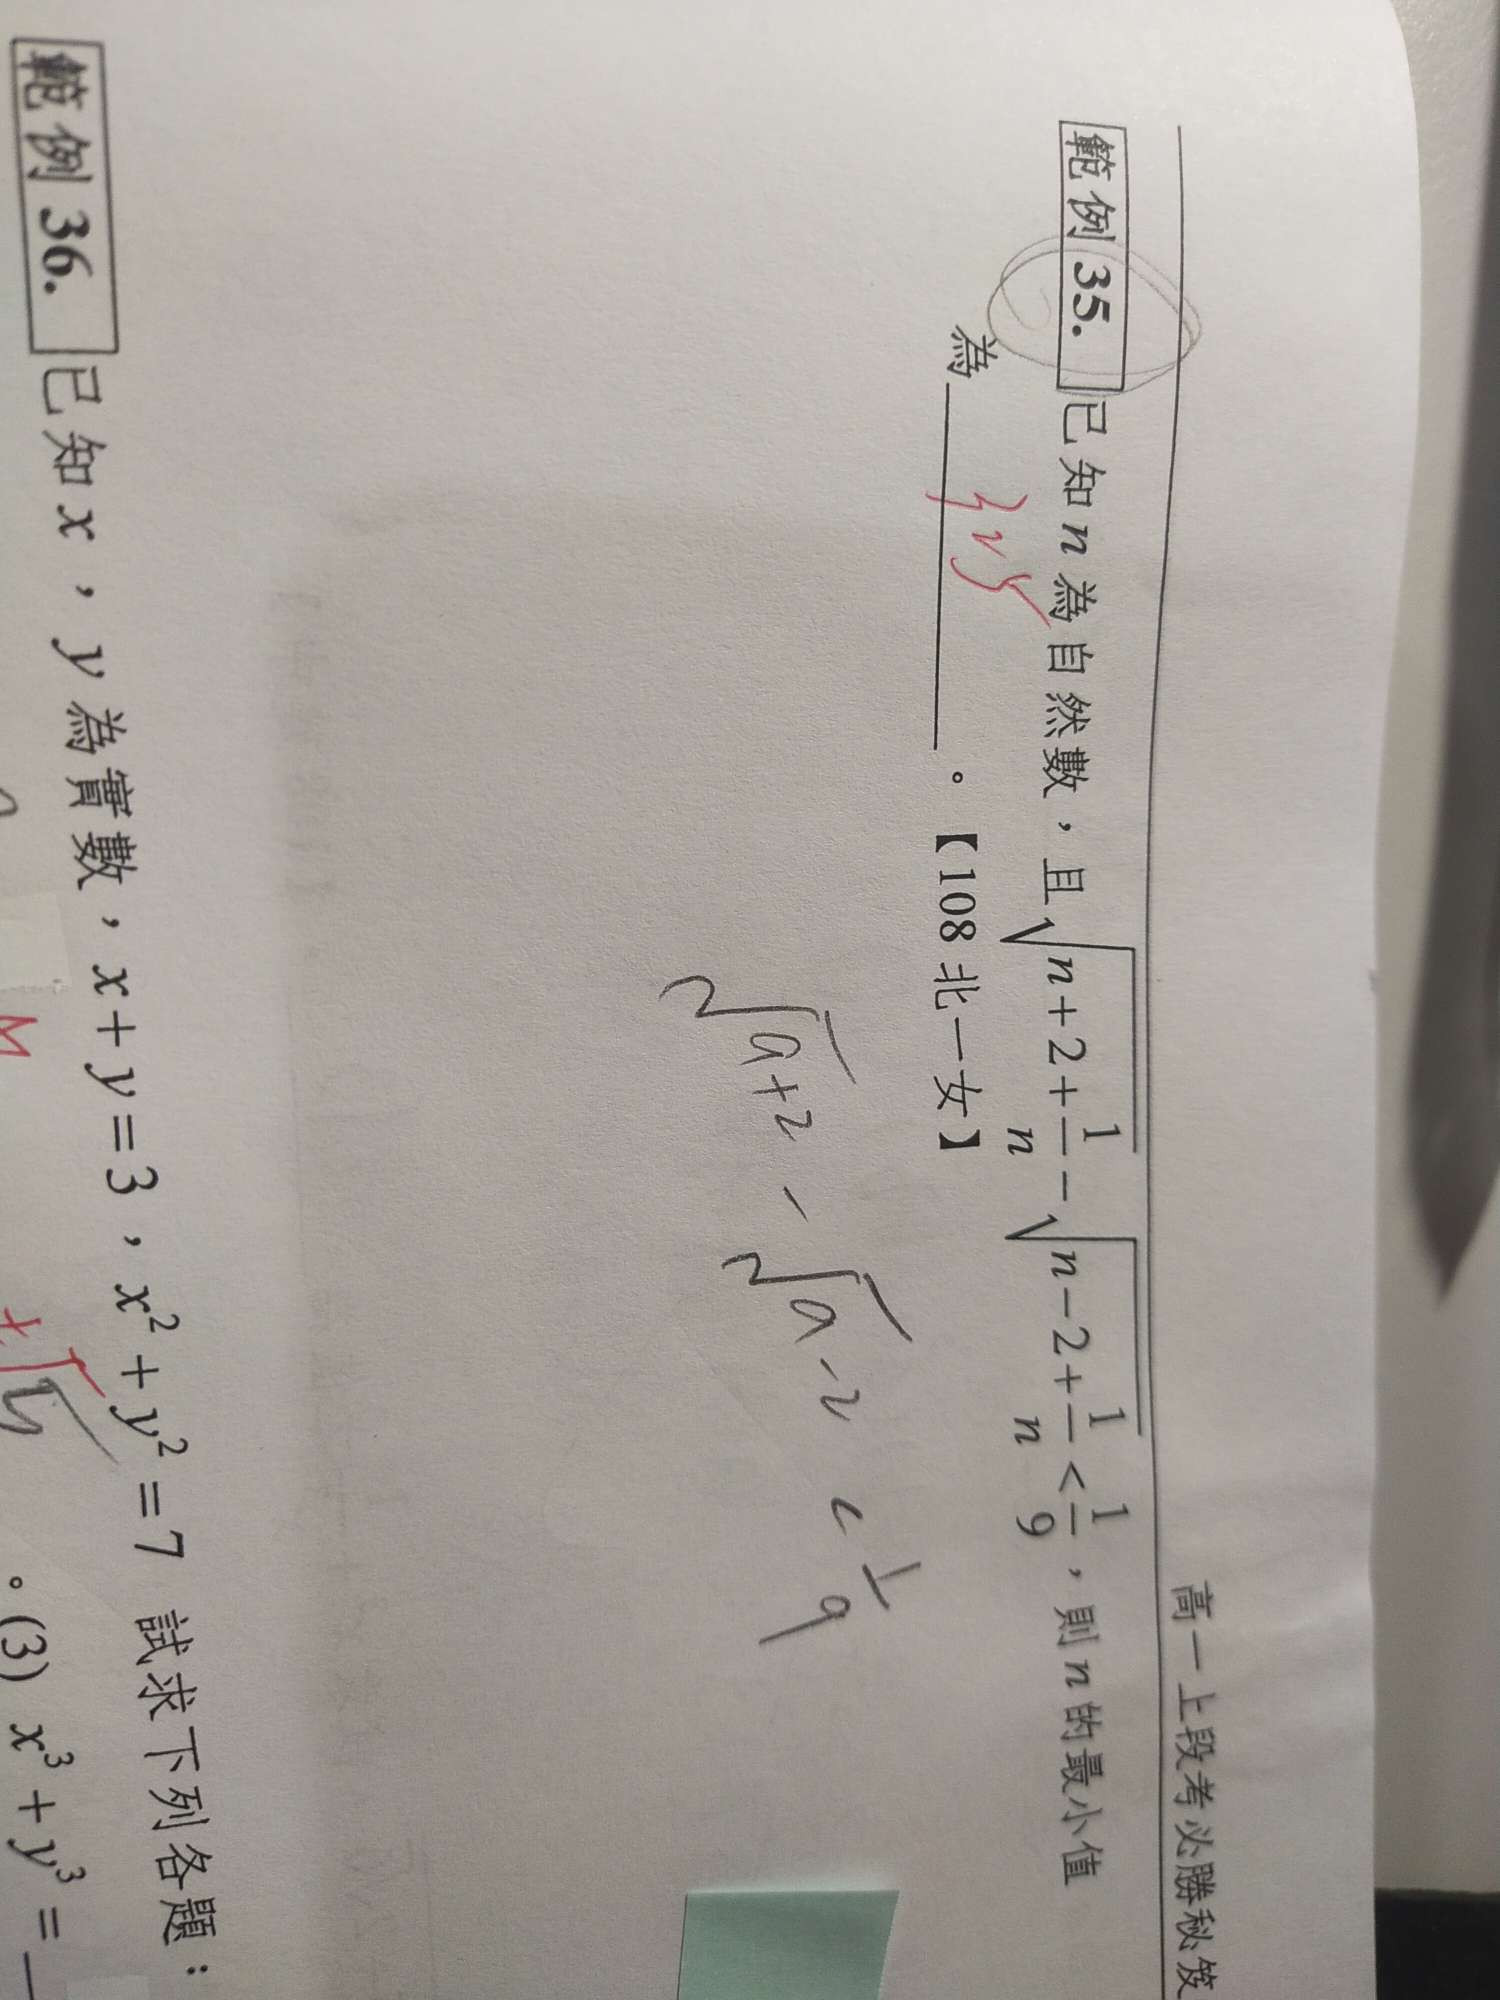 高一上段考必勝秘笈
範例 35. 已知 n 為自然數，且 √(n+2+1/n) − √(n−2+1/n) < 1/9，則 n 的最小值
為＿＿＿＿＿。【108 北一女】
325
√a+2 − √a−2 < 1/9
範例 36. 已知 x，y 為實數，x+y=3，x²+y²=7 試求下列各題：
。(3) x³+y³=